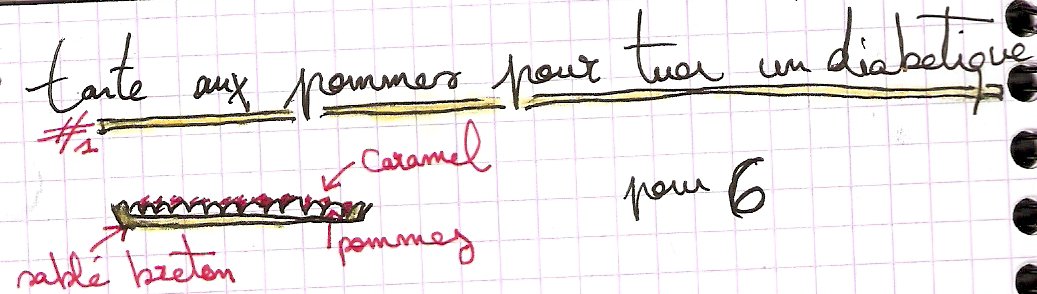 tarte aux pommes pour tuer un diabetique
#1
caramel
pour 6
pommes
sablé breton